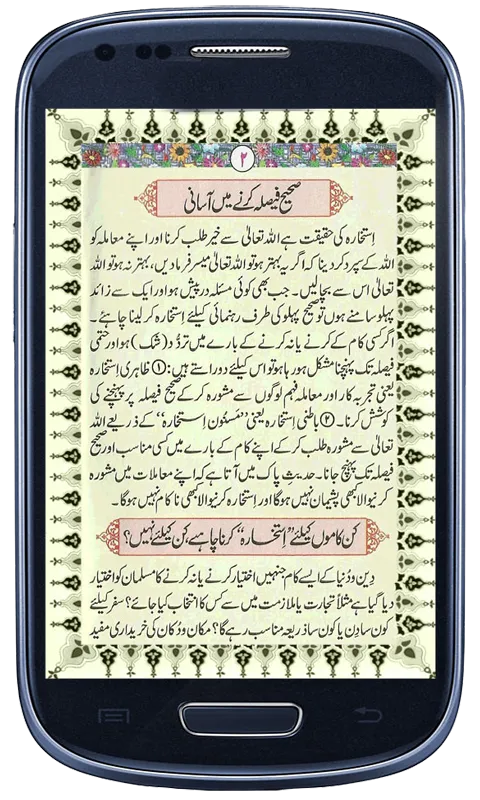 ۲
صحیح فیصلہ کرنے میں آسانی
اِستخارہ کی حقیقت ہے اللہ تعالٰی سے خیر طلب کرنا اور اپنے معاملہ کو
اللہ کے سپرد کر دینا کہ اگر یہ بہتر ہو تو اللہ تعالٰی میسر فرمادیں، بہتر نہ ہو تو اللہ
تعالٰی اس سے بچالیں۔ جب بھی کوئی مسئلہ درپیش ہو اور ایک سے زائد
پہلو سامنے ہوں تو صحیح پہلو کی طرف رہنمائی کیلئے اِستخارہ کر لینا چاہئے۔
اگر کسی کام کے کرنے یا نہ کرنے کے بارے میں تردُّد (شک) ہو اور حتمی
فیصلہ تک پہنچنا مشکل ہو رہا ہو تو اس کیلئے دو راستے ہیں: ① ظاہری اِستخارہ
یعنی تجربہ کار اور معاملہ فہم لوگوں سے مشورہ کر کے صحیح فیصلہ پر پہنچنے کی
کوشش کرنا۔ ② باطنی اِستخارہ یعنی ”مَسنون اِستخارہ“ کے ذریعے اللہ
تعالٰی سے مشورہ طلب کر کے اپنے کام کے بارے میں کسی مناسب اور صحیح
فیصلہ تک پہنچ جانا۔ حدیثِ پاک میں آتا ہے کہ اپنے معاملات میں مشورہ
کرنیوالا کبھی پشیمان نہیں ہوگا اور اِستخارہ کرنیوالا بھی نا کام نہیں ہوگا۔
کن کاموں کیلئے ”اِستخارہ“ کرنا چاہیے، کن کیلئے نہیں؟
دِین و دُنیا کے ایسے کام جنہیں اختیار کرنے یا نہ کرنے کا مسلمان کو اختیار
دیا گیا ہے مثلاً تجارت یا ملازمت میں سے کس کا انتخاب کیا جائے؟ سفر کیلئے
کون سا دن یا کون سا ذریعہ مناسب رہے گا؟ مکان و دُکان کی خریداری مفید